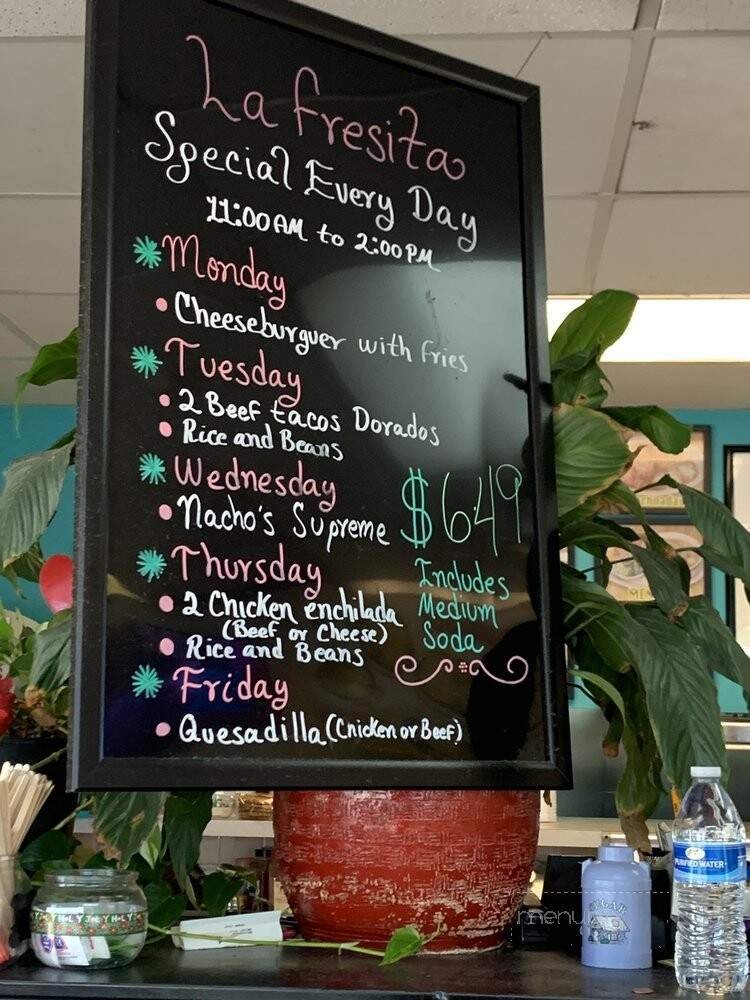 La Fresita
Special Every Day
11:00AM to 2:00PM
Monday
Cheeseburguer with fries
Tuesday
2 Beef tacos Dorados
Rice and Beans
Wednesday
Nacho's Supreme
$6.49
Includes
Medium
Soda
Thursday
2 Chicken enchilada
(Beef or Cheese)
Rice and Beans
Friday
Quesadilla (Chicken or Beef)
PURIFIED WATER
SUGAR
menu